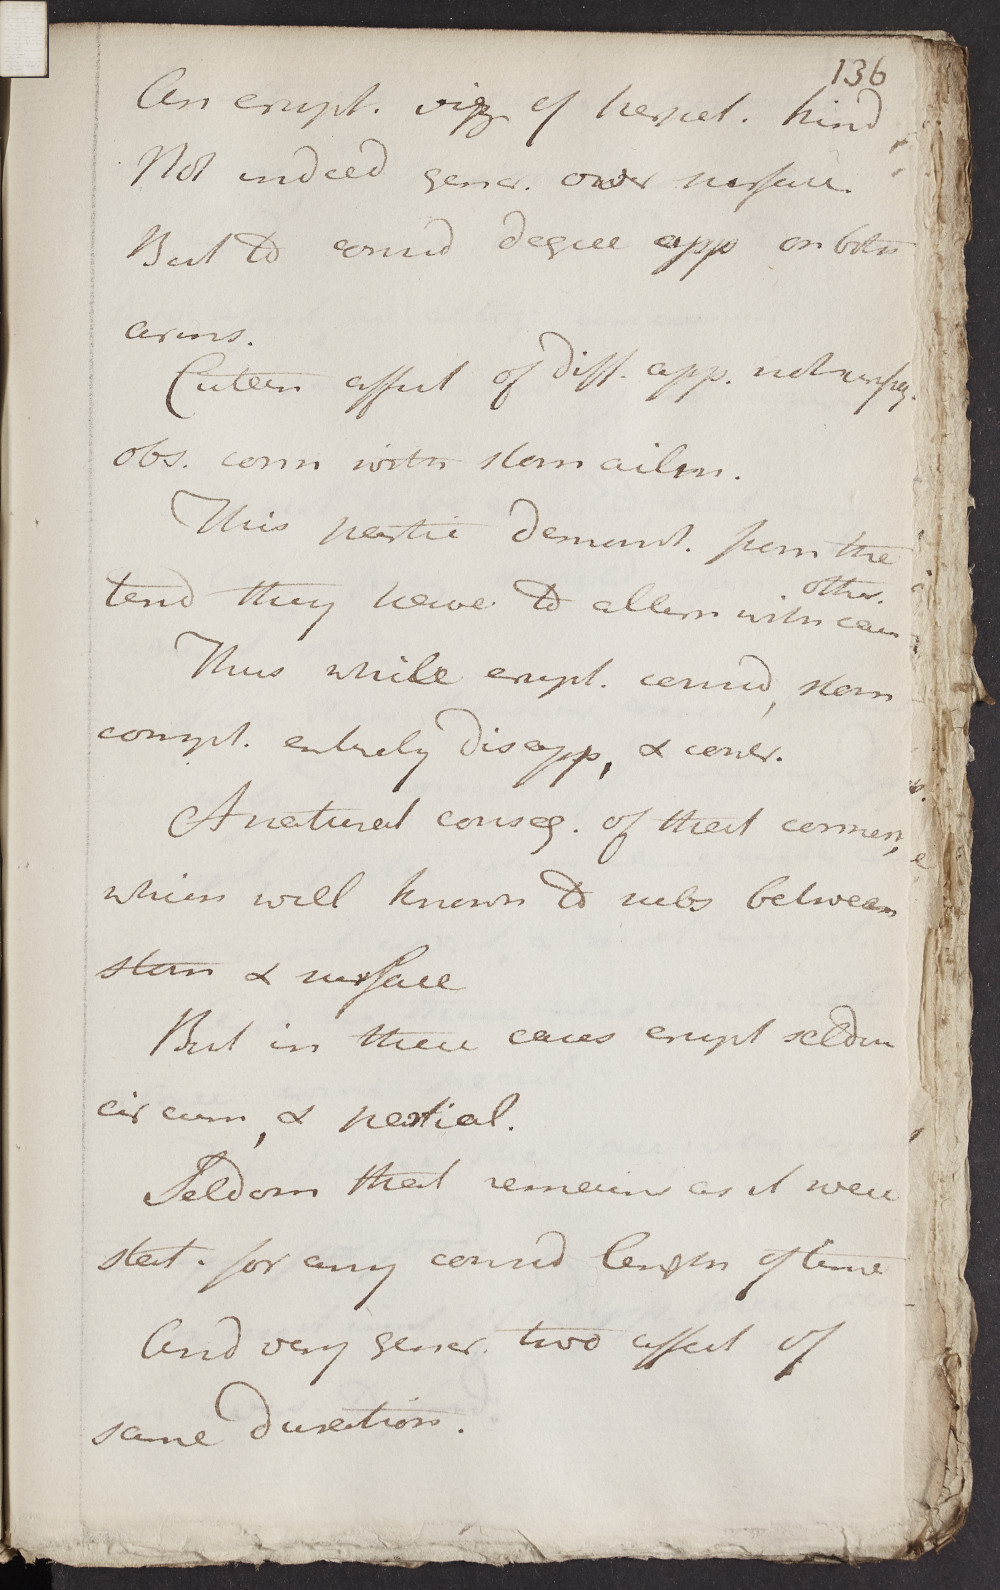 136
An erupt. viz of herpet. kind
Not indeed gener. over surface.
But to consid degree app on both
arms.
Cutan affect of diff. app. not unfreq.
obs. conn with stom ailm.
This partic demonst. from the
tend they have to altern with each
other.
Thus while erupt. consid, stom
compt. entirely disapp, & conver.
A natural conseq. of that connex,
which well known to subs between
stom & surface
But in these cases erupt seldom
circum, & partial.
Seldom that remains as it were
stat. for any consid length of time
And very gener. two affect of
same duration.